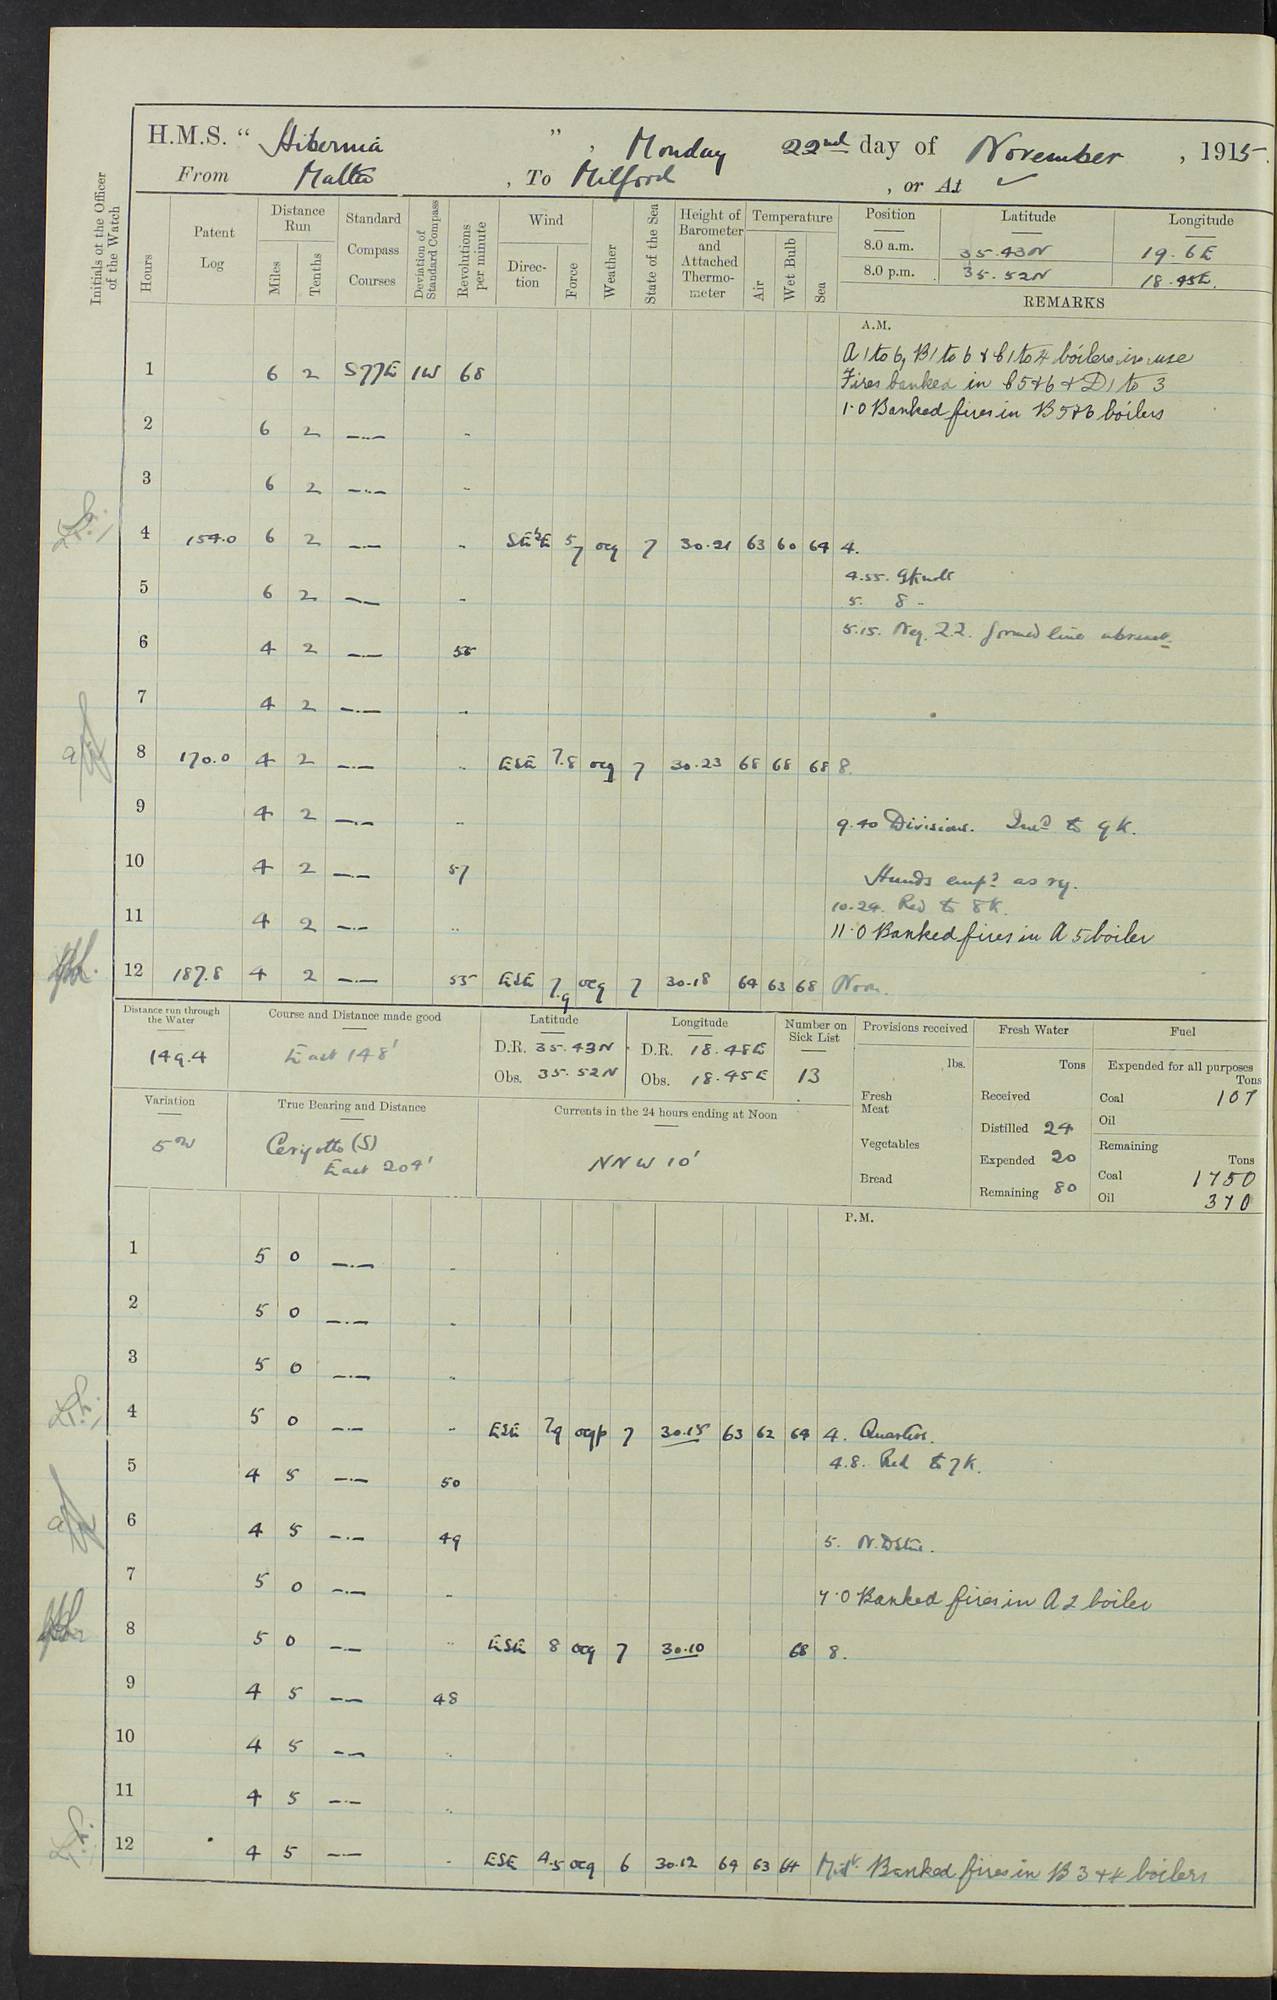 H.M.S. “ Hibernia ” , Monday 22nd day of November , 1915.
From Malta , To Milford , or At ✓
Initials of the Officer of the Watch
Hours
Patent Log
Distance Run
Miles
Tenths
Standard Compass Courses
Deviation of Standard Compass
Revolutions per minute
Wind
Direction
Force
Weather
State of the Sea
Height of Barometer and Attached Thermometer
Temperature
Air
Wet Bulb
Sea
Position Latitude Longitude
8.0 a.m. 35.43N 19.6E
8.0 p.m. 35.52N 18.45E.
REMARKS
A.M.
A 1 to 6, B 1 to 6 & C 1 to 4 boilers in use
1 6 2 S77E 1W 68 Fires banked in C 5 & 6 & D 1 to 3
1.0 Banked fires in B 5 & 6 boilers
2 6 2 —.— "
3 6 2 —.— "
4 154.0 6 2 —.— " SEbE 5/7 ocq 7 30.21 63 60 64 4.
4.55. 9 knots
5 6 2 —.— " 5. 8 "
5.15. Neg. 22. formed line abreast
6 4 2 —.— 55
7 4 2 —.— "
8 170.0 4 2 —.— " ESE 7.8 ocq 7 30.23 68 68 68 8.
9 4 2 —.— " 9.40 Divisions. Incd to 9 K.
10 4 2 —.— 57 Hands empd as ry.
10.24. Red to 8 K.
11 4 2 —.— " 11.0 Banked fires in A 5 boiler
12 187.8 4 2 —.— 55 ESE 7.9 ocq 7 30.18 64 63 68 Noon.
Distance run through the Water
149.4
Course and Distance made good
East 148'
Latitude
D.R. 35.43N
Obs. 35.52N
Longitude
D.R. 18.48E
Obs. 18.45E
Number on Sick List
13
Provisions received
lbs.
Fresh Meat
Vegetables
Bread
Fresh Water
Tons
Received
Distilled 24
Expended 20
Remaining 80
Fuel
Expended for all purposes
Tons
Coal 107
Oil
Remaining
Tons
Coal 1750
Oil 370
Variation
5°W
True Bearing and Distance
Cerigotto (S)
East 204'
Currents in the 24 hours ending at Noon
NNW 10'
P.M.
1 5 0 —.— "
2 5 0 —.— "
3 5 0 —.— "
4 5 0 —.— " ESE 7.9 ocqp 7 30.15 63 62 64 4. Quarters.
4.8. Red to 7 K.
5 4 5 —.— 50
6 4 5 —.— 49 5. N.Dstns.
7 5 0 —.— " 7.0 Banked fires in A 2 boiler
8 5 0 —.— " ESE 8 ocq 7 30.10 68 8.
9 4 5 —.— 48
10 4 5 —.— "
11 4 5 —.— "
12 4 5 —.— " ESE 4.5 ocq 6 30.12 64 63 64 Midt. Banked fires in B 3 & 4 boilers